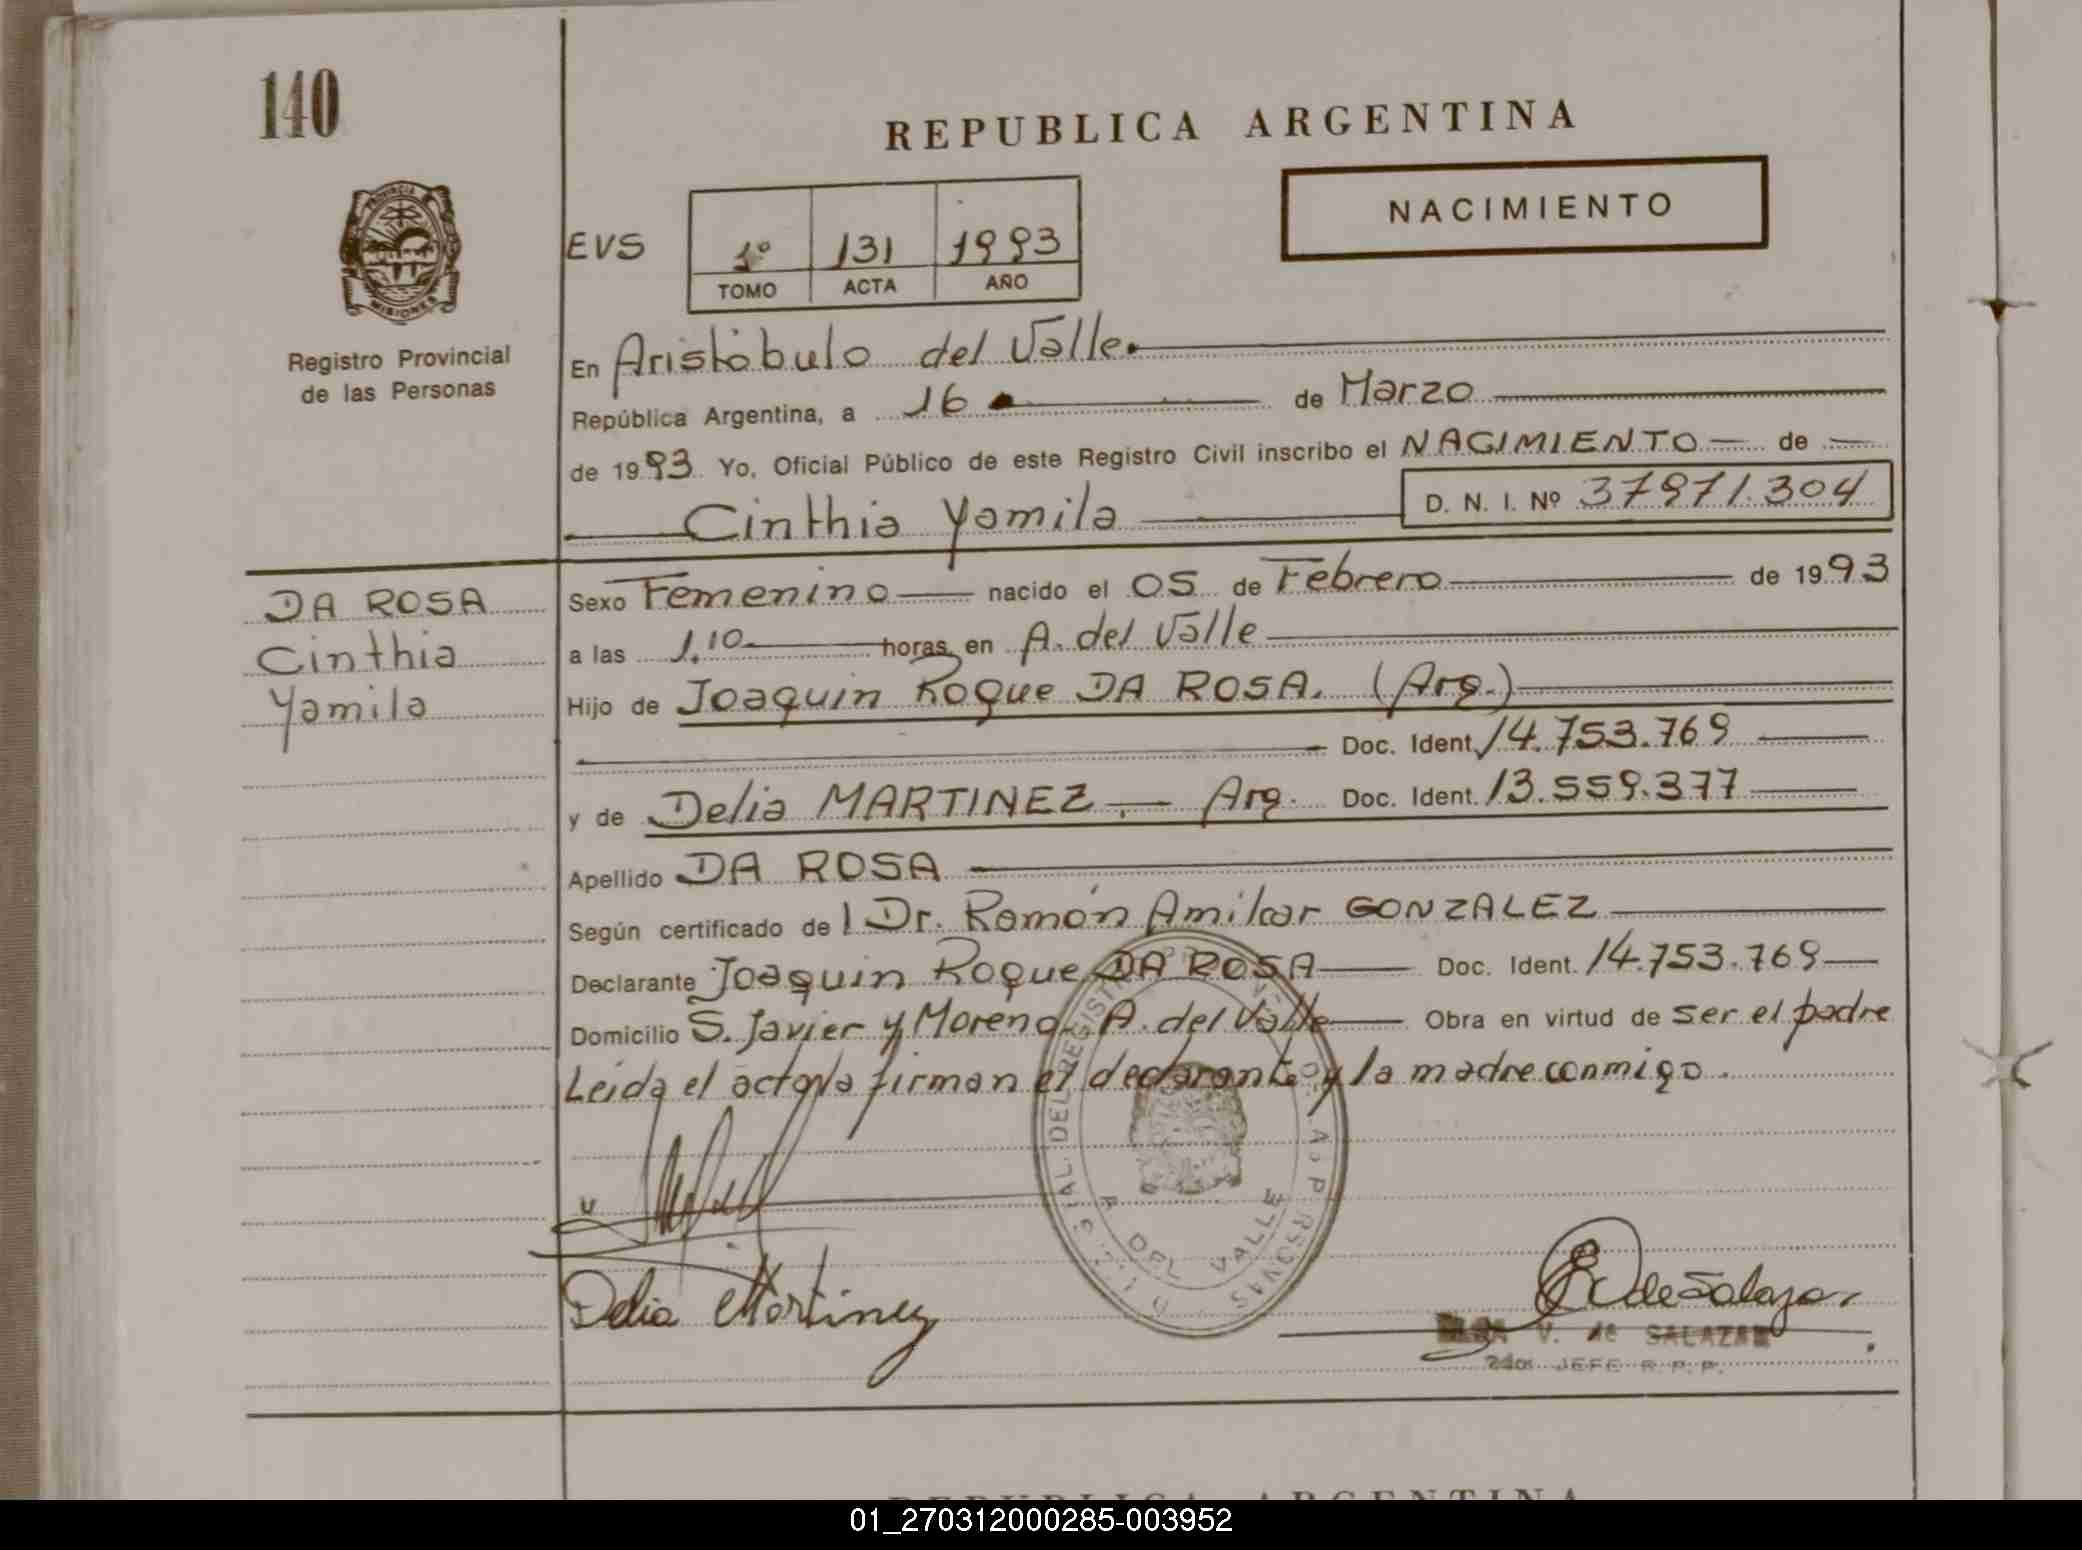 140
REPUBLICA ARGENTINA
NACIMIENTO
PROVINCIA
MISIONES
Registro Provincial
de las Personas
EVS
1º 131 1993
TOMO ACTA AÑO
En Aristóbulo del Valle.
República Argentina, a 16 de Marzo
de 1993 Yo, Oficial Público de este Registro Civil inscribo el NACIMIENTO de
Cinthia Yamila D. N. I. Nº 37971.304
DA ROSA
Cinthia
Yamila
Sexo Femenino nacido el 05 de Febrero de 1993
a las 1.10 horas, en A. del Valle
Hijo de Joaquin Roque DA ROSA. (Arg.)
Doc. Ident. 14.753.769
y de Delia MARTINEZ. Arg. Doc. Ident. 13.559.377
Apellido DA ROSA
Según certificado del Dr. Ramón Amilcar GONZALEZ
Declarante Joaquin Roque DA ROSA Doc. Ident. 14.753.769
Domicilio S. Javier y Moreno A. del Valle Obra en virtud de ser el padre
Leida el acta la firman el declarante y la madre conmigo.
A DEL VALLE
Delia Martinez
de Salazar
V. de SALAZAR
JEFE R. P. P.
REPUBLICA ARGENTINA
01_270312000285-003952